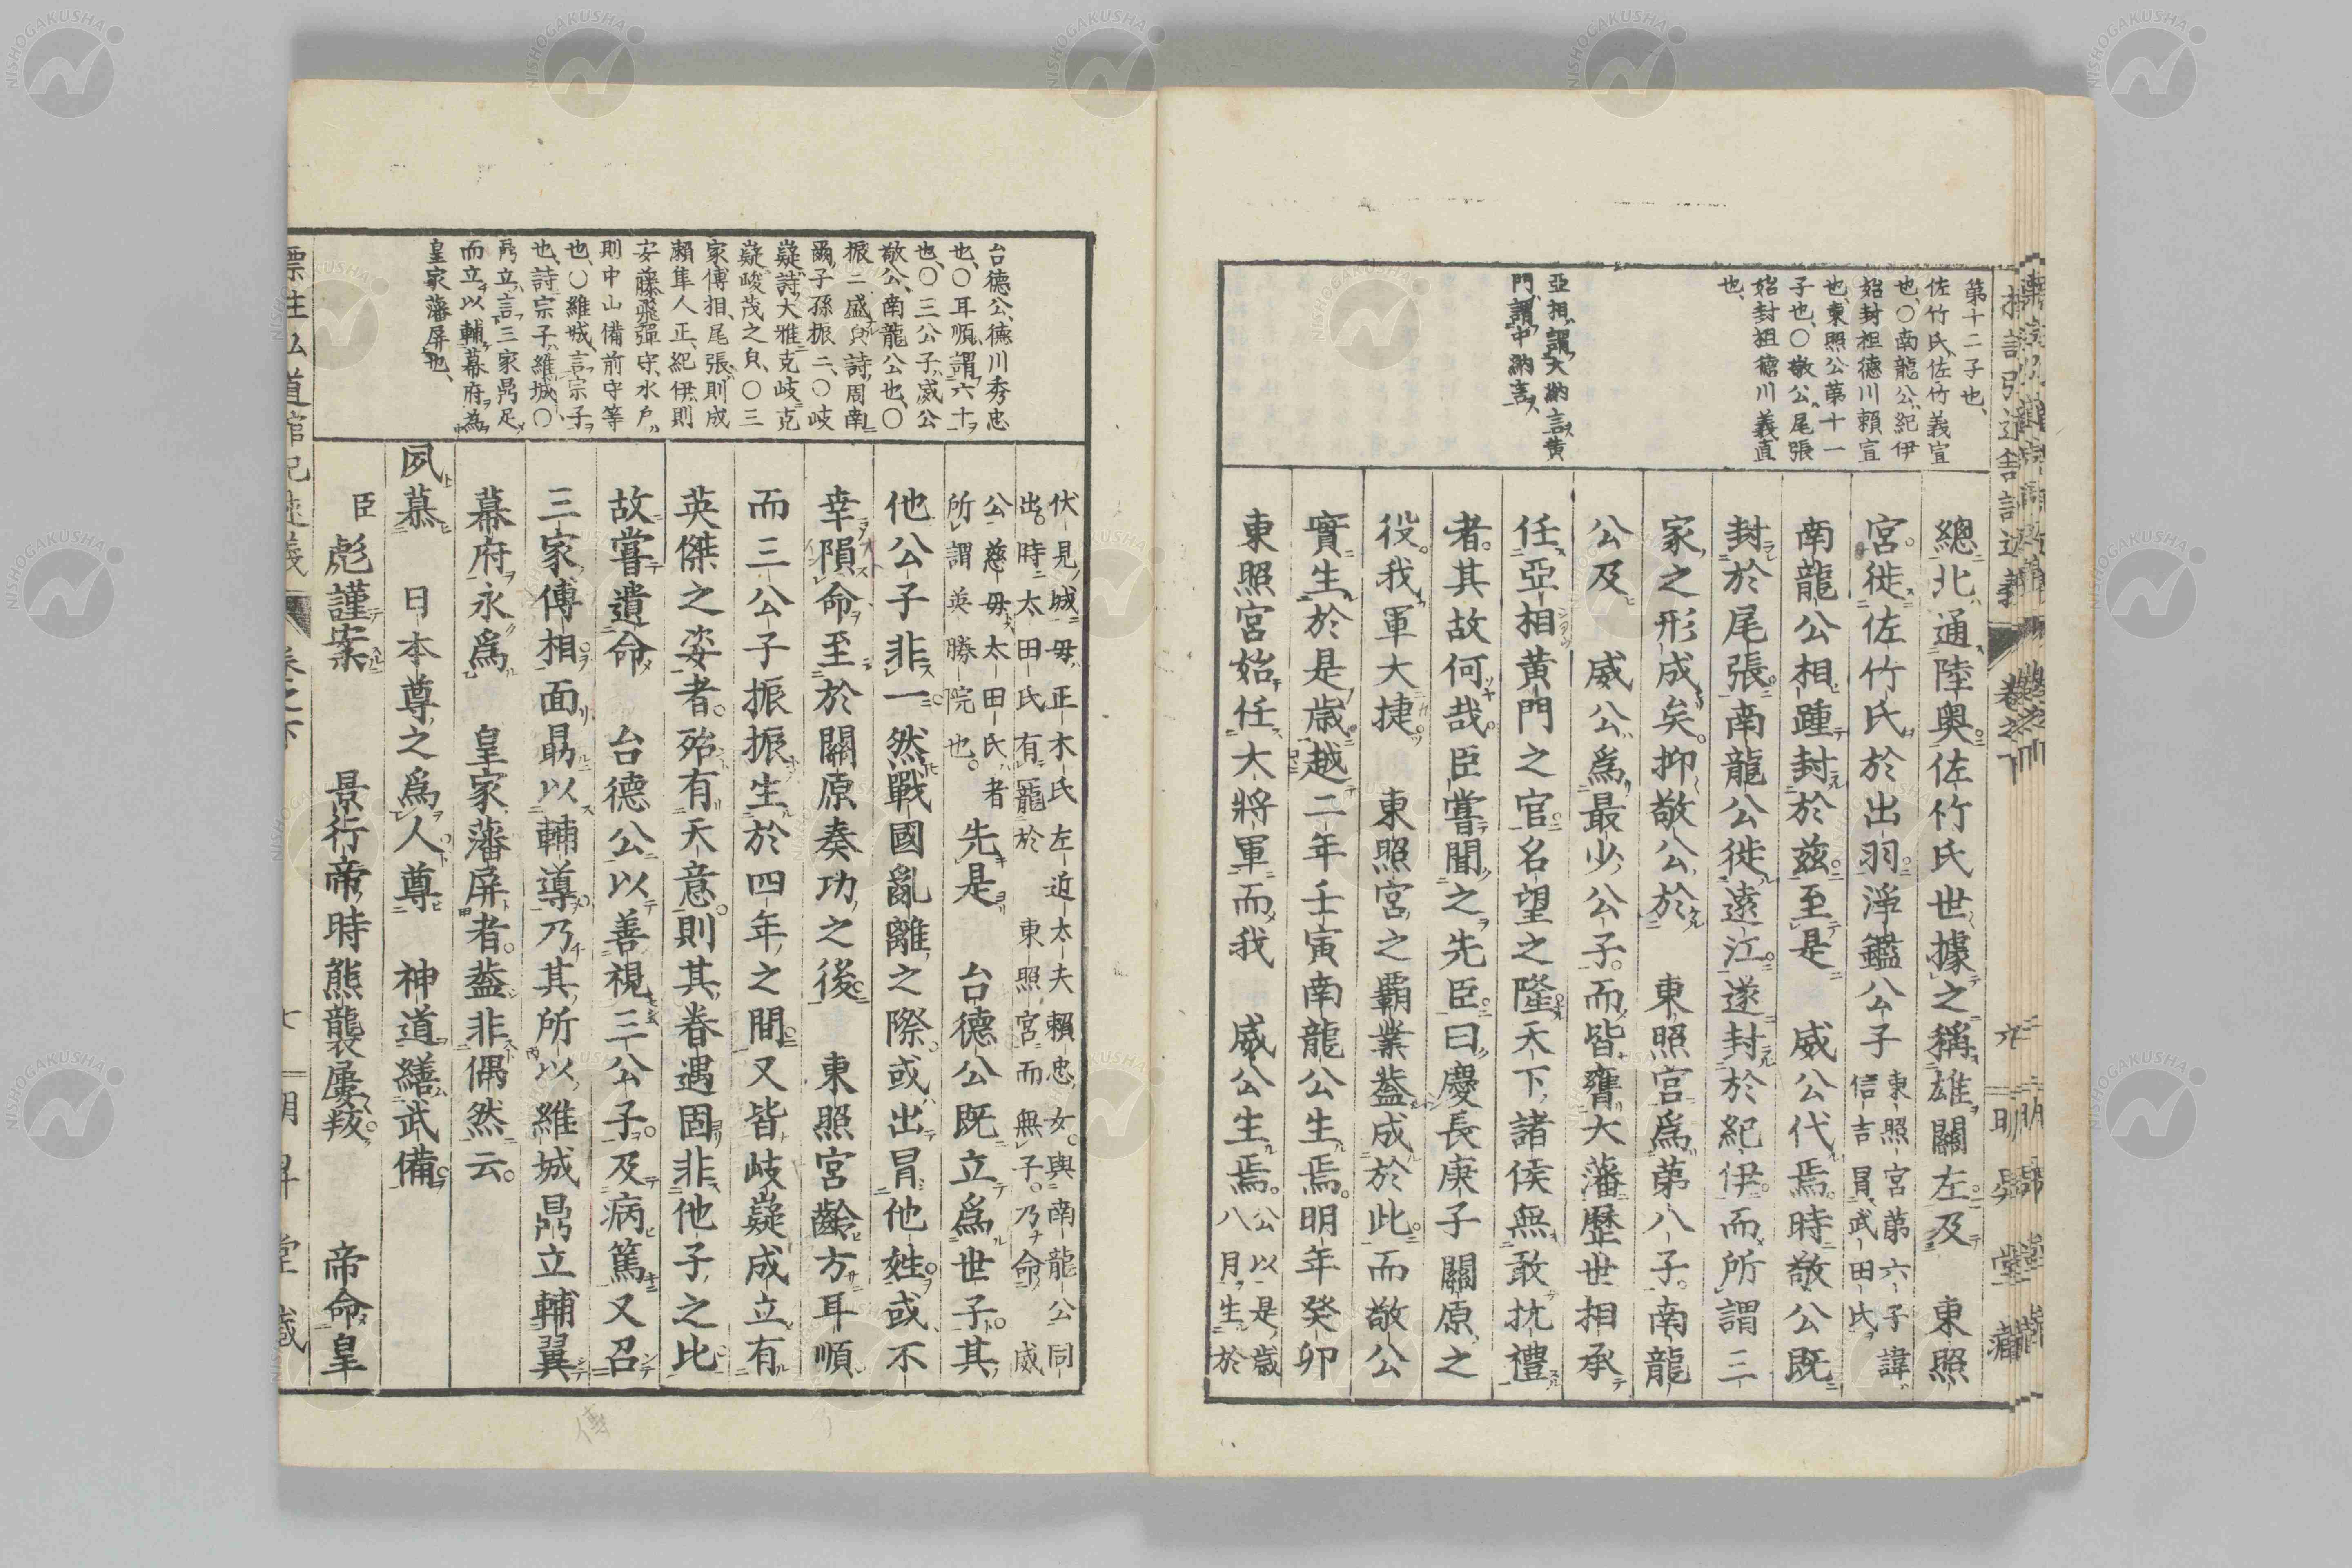 第十二子也、
佐竹氏、佐竹義宣
也、〇南龍公、紀伊
始封祖德川賴宣
也、東照公第十一
子也、〇敬公、尾張
始封祖德川義直
也、
亞相、謂大納言、黄
門、謂中納言、
總北通陸奥佐竹氏世據之稱雄關左及　東照
宮徙佐竹氏於出羽淨鑑公子東照宮第六子諱信吉冒武田氏
南龍公相踵封於茲至是　威公代焉時敬公既
封於尾張南龍公徙遠江遂封於紀伊而所謂三
家之形成矣抑敬公於　東照宮爲第八子南龍
公及　威公爲最少公子而皆膺大藩歷世相承
任亞相黄門之官名望之隆天下諸侯無敢抗禮
者其故何哉臣嘗聞之先臣曰慶長庚子關原之
役我軍大捷　東照宮之霸業蓋成於此而敬公
實生於是歳越二年壬寅南龍公生焉明年癸卯
東照宮始任大將軍而我　威公生焉公以是歳八月生於
台德公、德川秀忠
也、〇耳順、謂六十
也、〇三公子、威公
敬公、南龍公也、〇
振二盛皃、詩、周南
爾子孫振二、〇岐
嶷、詩、大雅克岐克
嶷、峻茂之皃、〇三
家傅相、尾張則成
瀨隼人正、紀伊則
安藤飛彈守、水戸
則中山備前守等
也、〇維城、言宗子
也、詩宗子維城、〇
鼎立、言三家鼎足
而立、以輔幕府、爲
皇家藩屏也、
伏見城母正木氏左近太夫賴忠女與南龍公同
出時太田氏有寵於　東照宮而無子乃命　威
公慈母太田氏者
所謂英勝院也先是　台德公既立爲世子其
他公子非一然戰國亂離之際或出冒他姓或不
幸隕命至於關原奏功之後　東照宮齡方耳順
而三公子振振生於四年之間又皆岐嶷成立有
英傑之姿者殆有天意則其眷遇固非他子之比
故嘗遺命　台德公以善視三公子及病篤又召
三家傅相面勗以輔導乃其所以維城鼎立輔翼
幕府永爲　皇家藩屏者蓋非偶然云
夙慕　日本尊之爲人尊　神道繕武備
臣彪謹案　景行帝時熊襲屢叛　帝命皇